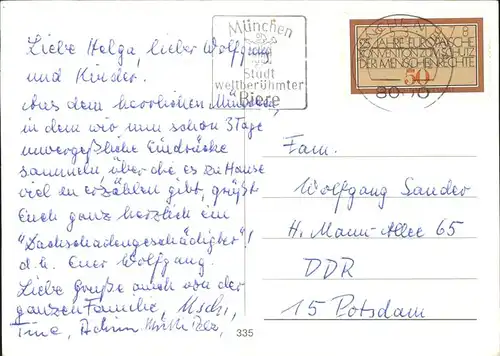 Liebe Helga, lieber Wolfgang
und Kinder.
Aus dem herrlichen München,
in dem wir nun schon 3 Tage
unvergeßliche Eindrücke
sammeln, über die es zu Hause
viel zu erzählen gibt, grüßt
Euch ganz herzlich ein
"Dachschadengeschädigter"!
d.h. Euer Wolfgang.
Liebe Grüße auch von der
ganzen Familie,
Tina, Achim
München
Stadt
weltberühmter
Biere
25 JAHRE EUROP.
KONVENTION Z. SCHUTZ
DER MENSCHENRECHTE
50
Fam.
Wolfgang Sander
H. Mann-Allee 65
DDR
15 Potsdam
335